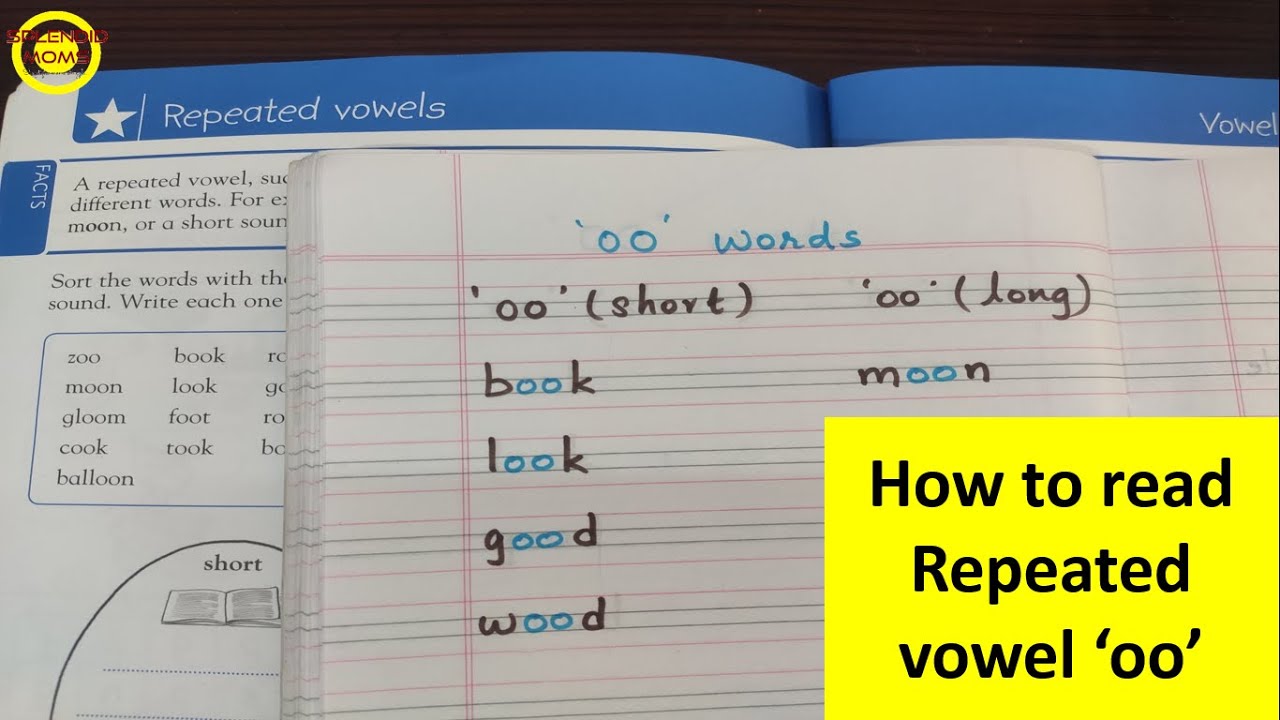 SPLENDID
MOMS
Repeated vowels
Vowel
FACTS
A repeated vowel, suc
different words. For ex
moon, or a short soun
Sort the words with the
sound. Write each one
zoo book ro
moon look go
gloom foot ro
cook took bo
balloon
short
'oo' words
'oo' (short) 'oo' (long)
book moon
look
good
wood
How to read
Repeated
vowel ‘oo’